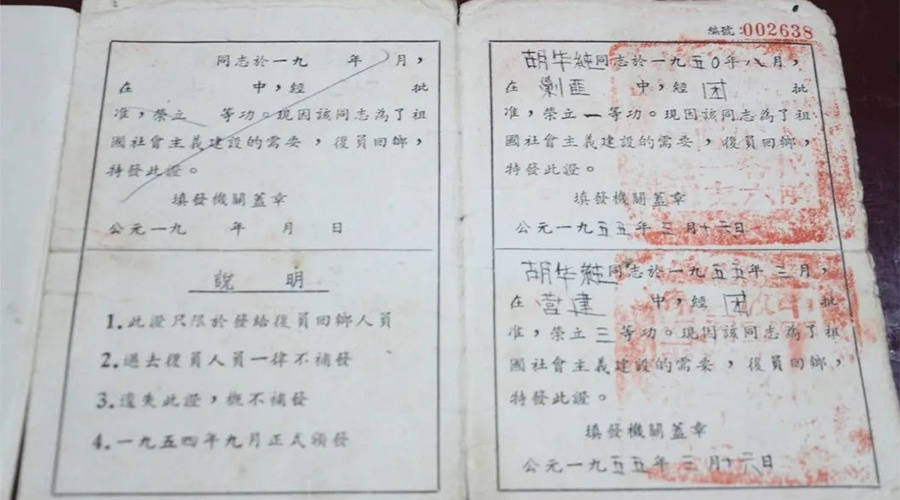 同志於一九　年　月，
在　中，經　批
准，榮立　等功。現因該同志為了祖
國社會主義建設的需要，復員回鄉，
特發此證。
填發機關蓋章
公元一九　年　月　日
說明
1.此證只限於發給復員回鄉人員
2.過去復員人員一律不補發
3.遺失此證，概不補發
4.一九五四年九月正式頒發
編號:002638
胡牛純同志於一九五〇年八月，
在剿匪中，經团批
准，榮立一等功。現因該同志為了祖
國社會主義建設的需要，復員回鄉，
特發此證。
填發機關蓋章
公元一九五五年三月十六日
胡牛純同志於一九五五年三月，
在营建中，經团批
准，榮立三等功。現因該同志為了祖
國社會主義建設的需要，復員回鄉，
特發此證。
填發機關蓋章
公元一九五五年三月十六日